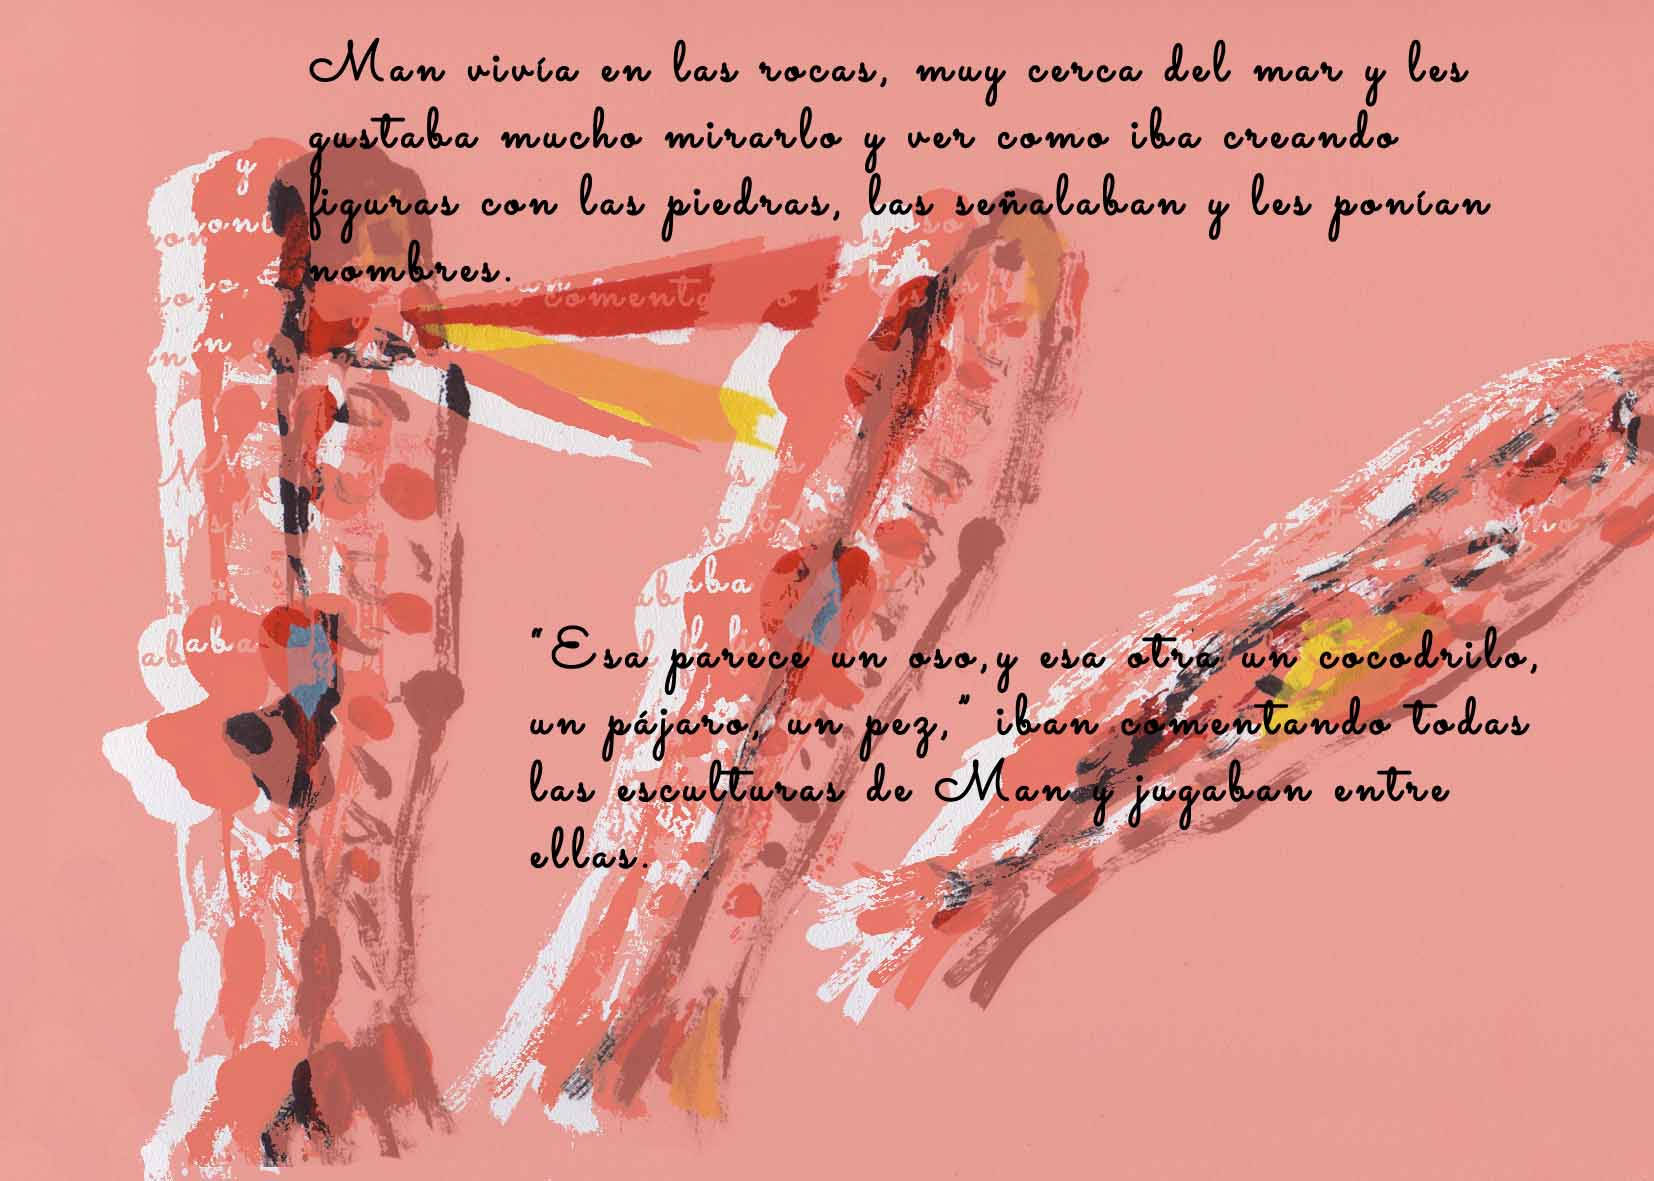 Man vivía en las rocas, muy cerca del mar y les
gustaba mucho mirarlo y ver como iba creando
figuras con las piedras, las señalaban y les ponían
nombres.
"Esa parece un oso,y esa otra un cocodrilo,
un pájaro, un pez," iban comentando todas
las esculturas de Man y jugaban entre
ellas.